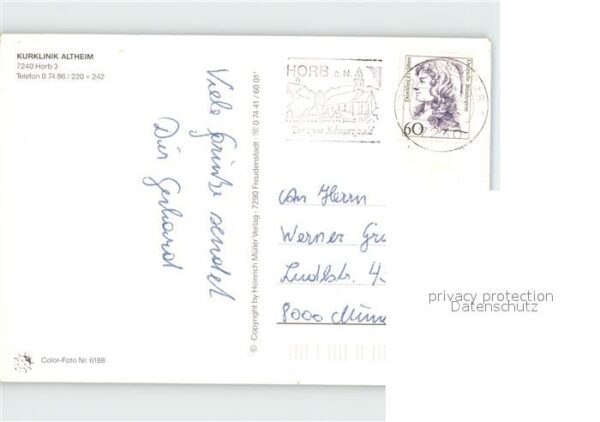 KURKLINIK ALTHEIM
7240 Horb 3
Telefon 0 74 86 / 220 + 242
Viele Grüße sendet
Dir Gerhard
© Copyright by Heinrich Müller Verlag · 7290 Freudenstadt · ☏ 0 74 41 / 60 01
HORB a. N.
Tor zum Schwarzwald
Deutsche Bundespost
60
An Herrn
Werner
Ludlstr. 4
8000 Mün
privacy protection
Datenschutz
Color-Foto Nr. 6188